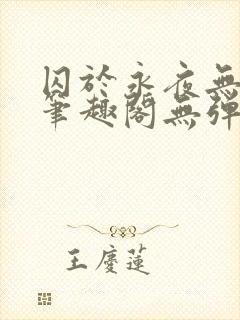 囚於永夜無
筆趣閣無彈
王慶蓮